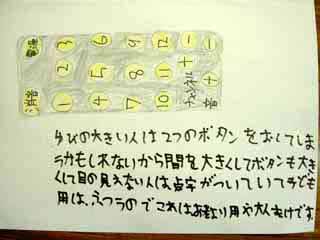 電源 3 6 9 12 ー ー
2 5 8 11 チャンネル 音
消音 1 4 7 10 + +
タびの大きい人は2つのボタンをおしてしま
うカもしれないから間を大きくしてボタンも大き
くして目の見えない人は点字がついていて子ども
用は、ふつうのでこれはお年より用や大人むけです。